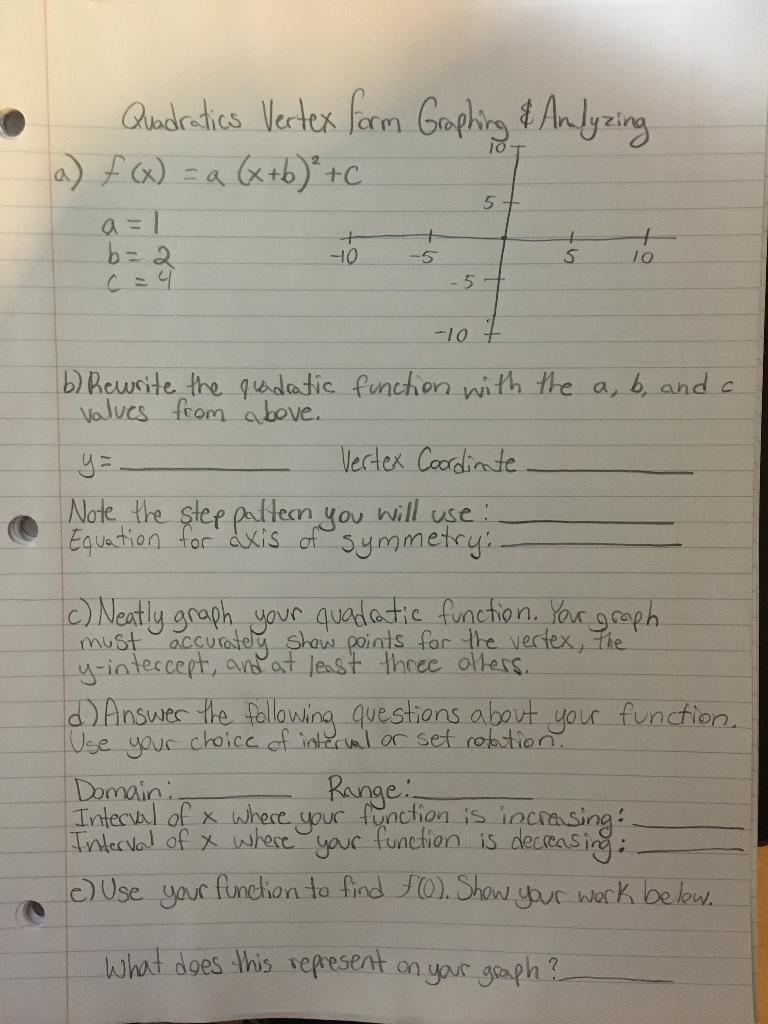 Quadratics Vertex Form Graphing & Analyzing
a) f(x) = a (x+b)² + c
a = 1
b = 2
c = 4
10
5
-10 -5 5 10
-5
-10
b) Rewrite the quadratic function with the a, b, and c
values from above.
y = ________ Vertex Coordinate ________
Note the step pattern you will use: ________
Equation for axis of symmetry: ________
c) Neatly graph your quadratic function. Your graph
must accurately show points for the vertex, the
y-intercept, and at least three others.
d) Answer the following questions about your function.
Use your choice of interval or set notation.
Domain: ________ Range: ________
Interval of x where your function is increasing: ________
Interval of x where your function is decreasing: ________
e) Use your function to find f(0). Show your work below.
What does this represent on your graph? ________